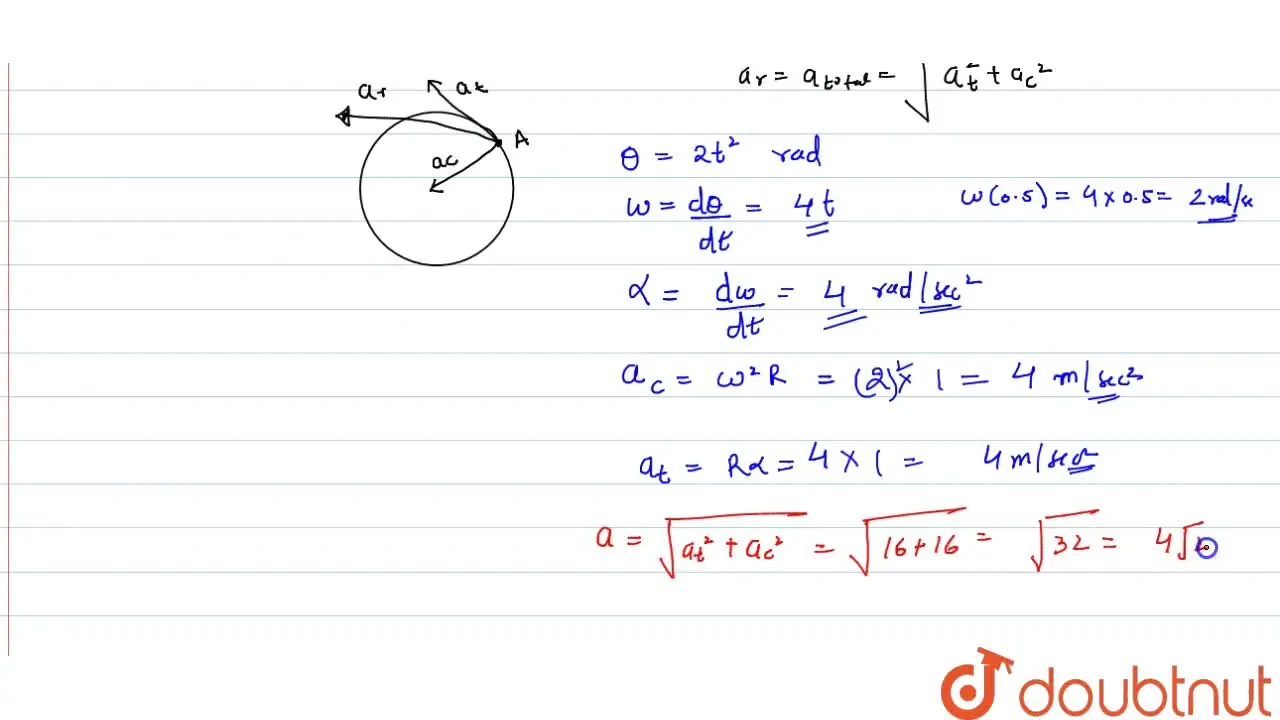 ar = atotal = √(at² + ac²)
ar
at
A
ac
θ = 2t² rad
ω = dθ/dt = 4t
ω(0.5) = 4 × 0.5 = 2 rad/s
α = dω/dt = 4 rad/sec²
ac = ω²R = (2)² × 1 = 4 m/sec²
at = Rα = 4 × 1 = 4 m/sec²
a = √(at² + ac²) = √(16+16) = √32 = 4√
doubtnut